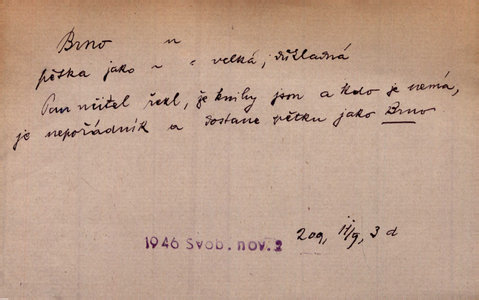 Brno n
pětka jako ~ = velká, důkladná
Pan učitel řekl, že knihy jsou a kdo je nemá,
je nepořádník a dostane pětku jako Brno
1946 Svob. nov. 2
209, 11/9, 3 d